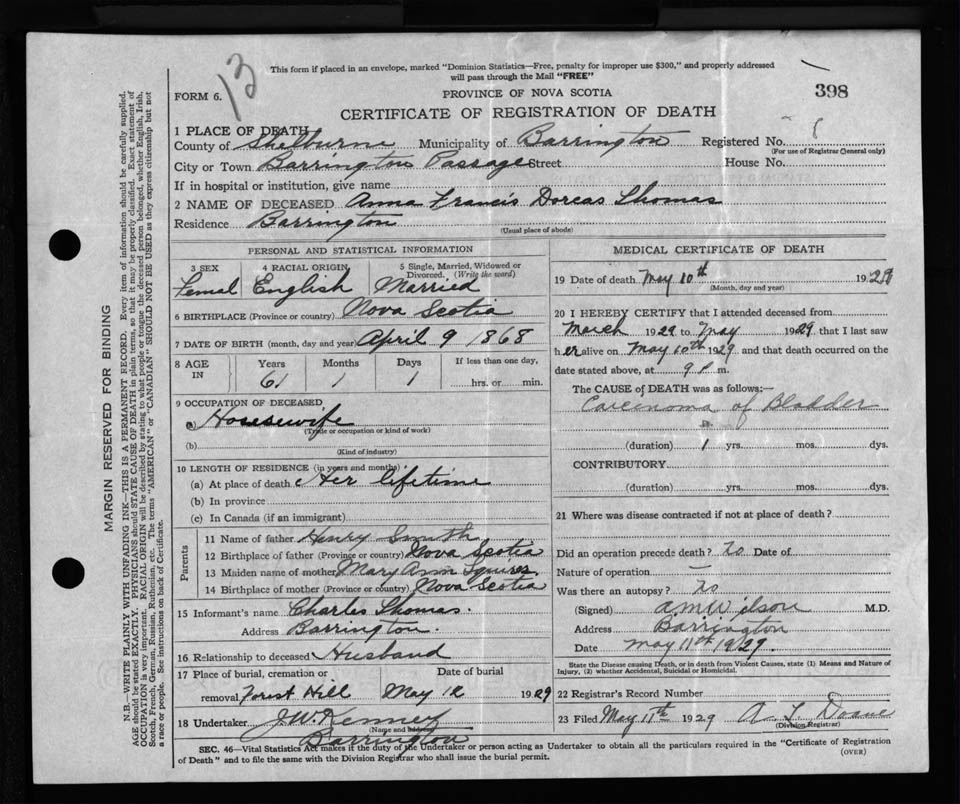 13
This form if placed in an envelope, marked "Dominion Statistics—Free, penalty for improper use $300," and properly addressed
will pass through the Mail "FREE"
FORM 6.
PROVINCE OF NOVA SCOTIA
398
CERTIFICATE OF REGISTRATION OF DEATH
1 PLACE OF DEATH
County of Shelburne Municipality of Barrington Registered No.
(For use of Registrar General only)
City or Town Barrington Passage Street House No.
If in hospital or institution, give name
2 NAME OF DECEASED Anna Francis Dorcas Thomas
Residence Barrington
(Usual place of abode)
PERSONAL AND STATISTICAL INFORMATION
3 SEX 4 RACIAL ORIGIN 5 Single, Married, Widowed or
Divorced. (Write the word)
Femal English Married
6 BIRTHPLACE (Province or country) Nova Scotia
7 DATE OF BIRTH (month, day and year) April 9 1868
8 AGE Years Months Days If less than one day,
IN 61 1 1 hrs. or min.
9 OCCUPATION OF DECEASED
(a) Housewife
(Trade or occupation or kind of work)
(b)
(Kind of industry)
10 LENGTH OF RESIDENCE (in years and months)
(a) At place of death Her lifetime
(b) In province
(c) In Canada (if an immigrant)
Parents
11 Name of father Henry Smith
12 Birthplace of father (Province or country) Nova Scotia
13 Maiden name of mother Mary Ann Squires
14 Birthplace of mother (Province or country) Nova Scotia
15 Informant's name Charles Thomas.
Address Barrington.
16 Relationship to deceased Husband
17 Place of burial, cremation or Date of burial
removal Forest Hill May 12 1929
18 Undertaker J.W. Kenney
(Name and address)
Barrington
MEDICAL CERTIFICATE OF DEATH
19 Date of death May 10th 1929
(Month, day and year)
20 I HEREBY CERTIFY that I attended deceased from
March 1929 to May 1929 that I last saw
h er alive on May 10th 1929 and that death occurred on the
date stated above, at 9 P m.
The CAUSE of DEATH was as follows:—
Carcinoma of Bladder
(duration) 1 yrs. mos. dys.
CONTRIBUTORY
(duration) yrs. mos. dys.
21 Where was disease contracted if not at place of death?
Did an operation precede death? No Date of
Nature of operation —
Was there an autopsy? No
(Signed) A M Wilson M.D.
Address Barrington
Date May 11th 1929.
State the Disease causing Death, or in death from Violent Causes, state (1) Means and Nature of
Injury, (2) whether Accidental, Suicidal or Homicidal.
22 Registrar's Record Number
23 Filed May 11th 1929 A L Doane
(Division Registrar)
SEC. 46—Vital Statistics Act makes it the duty of the Undertaker or person acting as Undertaker to obtain all the particulars required in the "Certificate of Registration
of Death" and to file the same with the Division Registrar who shall issue the burial permit.
(OVER)
MARGIN RESERVED FOR BINDING
N.B.—WRITE PLAINLY, WITH UNFADING INK—THIS IS A PERMANENT RECORD. Every item of information should be carefully supplied.
AGE should be stated EXACTLY. PHYSICIANS should STATE CAUSE OF DEATH in plain terms, so that it may be properly classified. Exact statement of
OCCUPATION is very important. RACIAL ORIGIN will be described by stating to what people or tongue the deceased person belonged, whether English, Irish,
Scotch, French, German, Russian, Ruthenian, etc. The terms "AMERICAN" or "CANADIAN" SHOULD NOT BE USED as they express citizenship but not
a race or people. See instructions on back of Certificate.